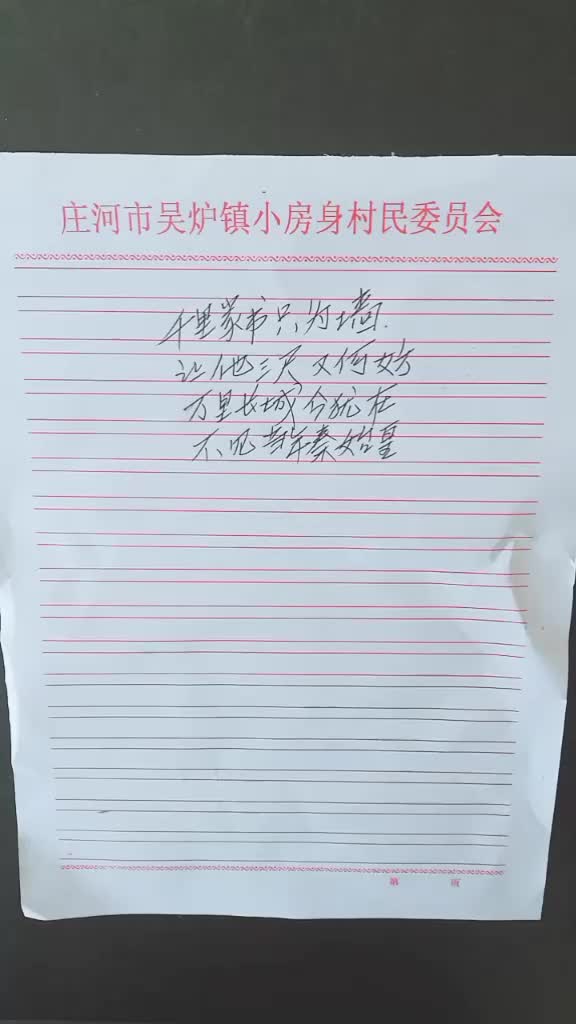 庄河市吴炉镇小房身村民委员会
千里家书只为墙.
让他三尺又何妨
万里长城今犹在
不见当年秦始皇
第 页